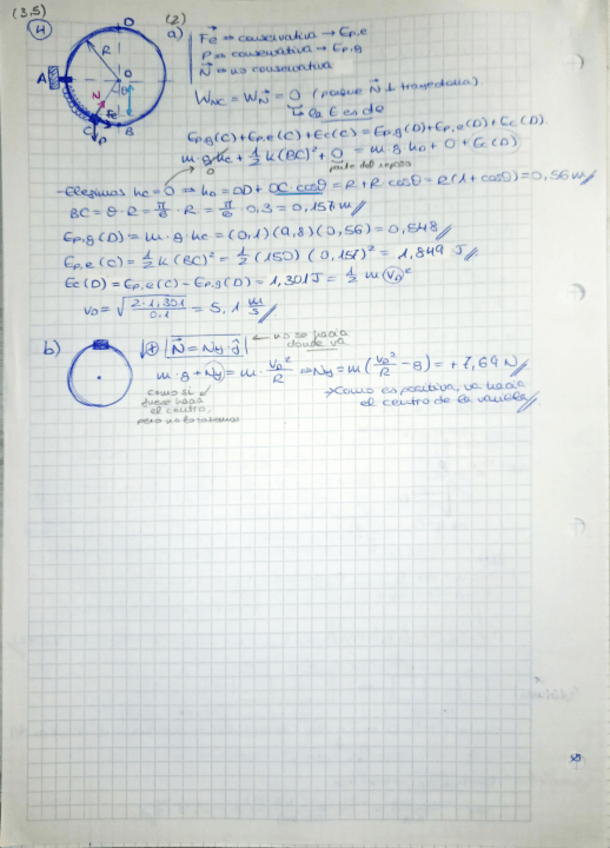 (3,5)
4
(2)
a)
Fe ⇒ conservativa → Ep,e
P ⇒ conservativa → Ep,g
N ⇒ no conservativa
D
R
A
O
θ
N
Fe
C
B
P
WNC = WN = 0 (porque N ⊥ trayectoria)
↳ la E es de
Ep,g(C) + Ep,e(C) + Ec(C) = Ep,g(D) + Ep,e(D) + Ec(D)
m·g·hc + 1/2 k(BC)² + 0 = m·g·hD + 0 + Ec(D)
0
parte del reposo
- Elegimos hc = 0 ⇒ hD = OD + OC·cosθ = R + R cosθ = R(1 + cosθ) = 0,56 m
BC = θ·R = π/6·R = π/6·0,3 = 0,157 m
Ep,g(D) = m·g·hc = (0,1)(9,8)(0,56) = 0,548
Ep,e(C) = 1/2 k(BC)² = 1/2 (150)(0,157)² = 1,849 J
Ec(D) = Ep,e(C) - Ep,g(D) = 1,301 J = 1/2 m vD²
vD = √(2·1,301/0,1) = 5,1 m/s
b)
↓⊕ N = Ny·j ← no se hacia
donde va
m·g + Ny = m·vD²/R ⇒ Ny = m(vD²/R - g) = +7,69 N
como si
fuese hacia
el centro,
pero no lo sabemos
→ Como es positiva, va hacia
el centro de la varilla